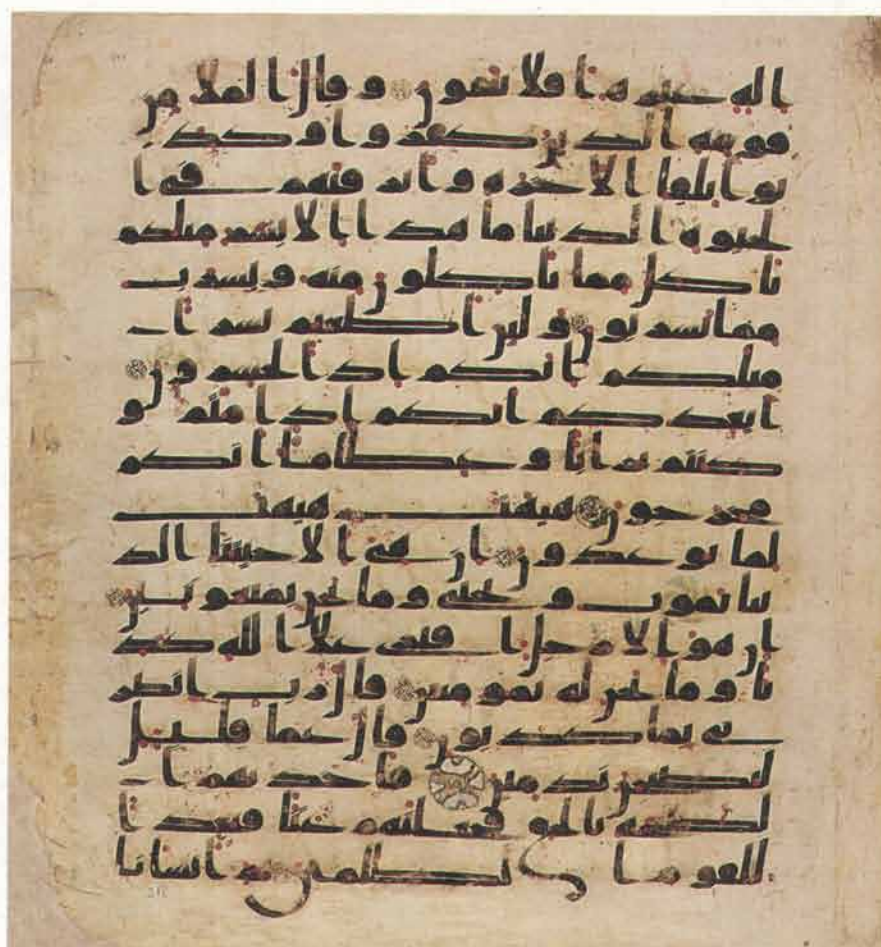 اله غيره افلا تتقون وقال الملا من
قومه الذين كفروا وكذ
بوا بلقا الاخرة واترفنهم في ا
لحيوة الدنيا ما هذا الا بشر مثلكم
ياكل مما تاكلون منه ويشرب
مما تشربون ولين اطعتم بشرا
مثلكم انكم اذا لخسرون
ايعدكم انكم اذا متم و
كنتم ترابا وعظاما انكم
مخرجون هيهت هيهت
لما توعدون ان هي الا حيتنا الد
نيا نموت ونحيا وما نحن بمبعوثين
ان هو الا رجل افترى على الله كذ
با وما نحن له بمومنين قال رب انصر
ني بما كذبون قال عما قليل
ليصبحن ندمين فاخذتهم ا
لصيحة بالحق فجعلنهم غثا فبعدا
للقوم الظلمين ثم انشانا